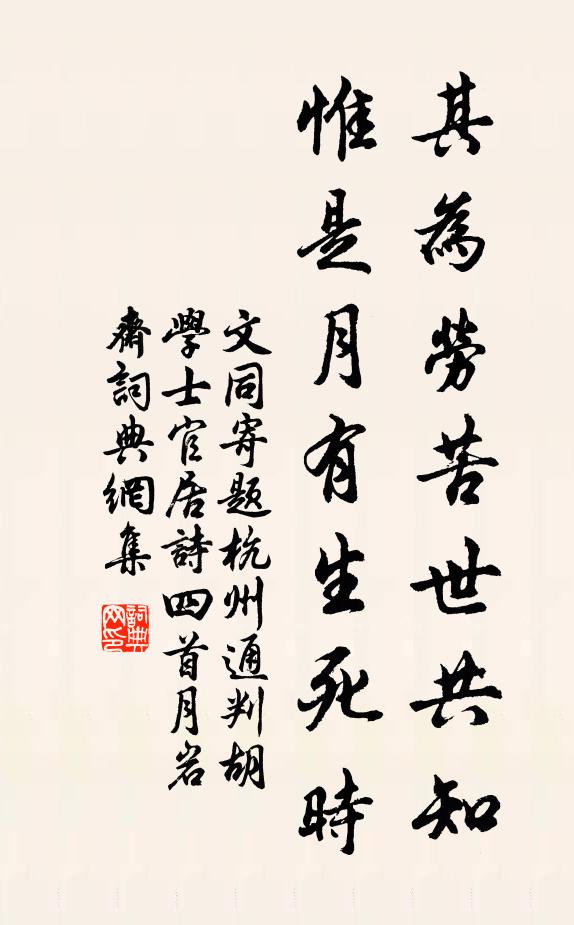 其為勞苦世共知
惟是月有生死時
文同寄題杭州通判胡
學士官居詩四首月岩
齋詞典網集
詞典
网印